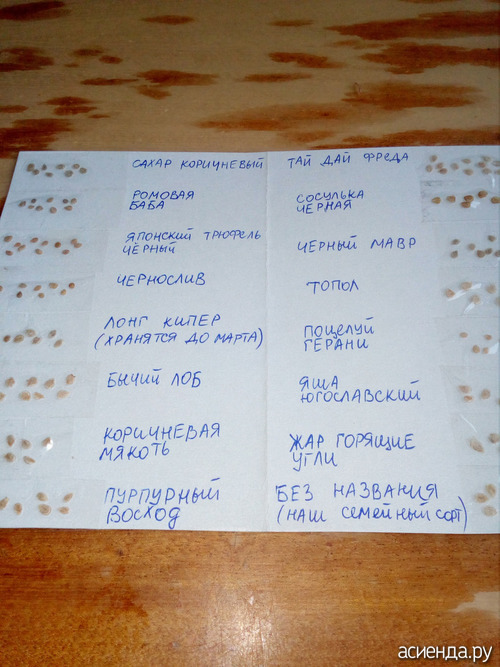 САХАР КОРИЧНЕВЫЙ
РОМОВАЯ
БАБА
ЯПОНСКИЙ ТРЮФЕЛЬ
ЧЁРНЫЙ
ЧЕРНОСЛИВ
ЛОНГ КИПЕР
(ХРАНЯТСЯ ДО МАРТА)
БЫЧИЙ ЛОБ
КОРИЧНЕВАЯ
МЯКОТЬ
ПУРПУРНЫЙ
ВОСХОД
ТАЙ ДАЙ ФРЕДА
СОСУЛЬКА
ЧЁРНАЯ
ЧЕРНЫЙ МАВР
ТОПОЛ
ПОЦЕЛУЙ
ГЕРАНИ
ЯША
ЮГОСЛАВСКИЙ
ЖАР ГОРЯЩИЕ
УГЛИ
БЕЗ НАЗВАНИЯ
(НАШ СЕМЕЙНЫЙ СОРТ)
асиенда.ру